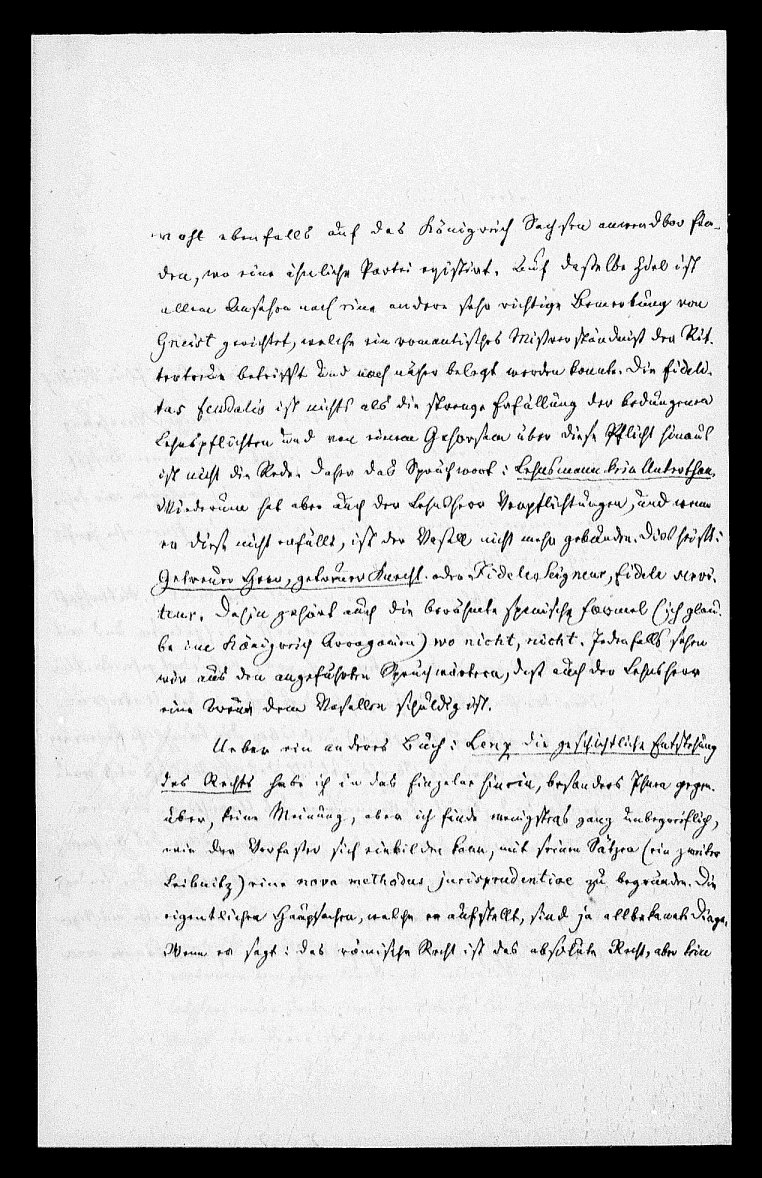 wohl ebenfalls auf das Königreich Sachsen anwendbar fin-
den, wo eine ähnliche Partei existirt. Auf dasselbe Ziel ist
allem Ansehen nach eine andere sehr richtige Bemerkung von
Gneist gerichtet, welche ein romantisches Misverständniß der Rit-
tertreue betrifft und noch näher belegt werden konnte. Die fideli-
tas feudalis ist nichts als die strenge Erfüllung der bedungenen
Lehnspflichten und von einem Gehorsam über diese Pflicht hinaus
ist nicht die Rede. Daher das Spruchwort: Lehnsmann kein Unterthan.
Wiederum hat aber auch der Lehnsherr Verpflichtungen, und wenn
er diese nicht erfüllt, ist der Vasall nicht mehr gebunden. Dies heißt:
Getreuer Herr, getreuer Knecht. oder Fideles seigneur, fidele servi-
teur. Dahin gehört auch die berühmte spanische Formel (ich glau-
be im Königreich Arragonien) wo nicht, nicht. Jedenfalls sehen
wir aus den angeführten Spruchwörtern, daß auch der Lehnsherr
eine Treue dem Vasallen schuldig ist.
Ueber ein anderes Buch: Lenz die geschichtliche Entstehung
des Rechts habe ich in das Einzelne hinein, besonders Ihnen gegen-
über, keine Meinung, aber ich finde wenigstens ganz unbegreiflich,
wie der Verfasser sich einbilden kann, mit seinen Sätzen (ein zweiter
Leibnitz) eine nova methodus jurisprudentiae zu begründen. Die
eigentlichen Hauptsachen, welche er aufstellt, sind ja allbekannte Dinge.
Wenn er sagt: das römische Recht ist das absolute Recht, aber kein